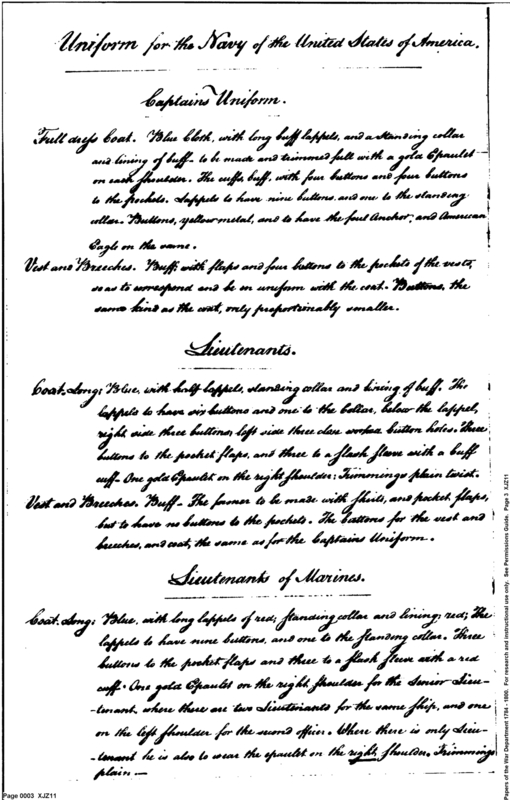 Uniform for the Navy of the United States of America.
Captains Uniform.
Full dress Coat. Blue Cloth, with long buff lappels, and a standing collar
and lining of buff - to be made and trimmed full with a gold Epaulet
on each shoulder. The cuffs buff, with four buttons and four buttons
to the pockets. Lappels to have nine buttons, and one to the standing
collar. Buttons, yellow metal, and to have the foul Anchor, and American
Eagle on the same.
Vest and Breeches. Buff; with flaps and four buttons to the pockets of the vests,
so as to correspond and be in uniform with the coat. Buttons, the
same kind as the coat, only proportionably smaller.
Lieutenants.
Coat. Long; Blue, with half lappels, standing collar and lining of buff. The
lappels to have six buttons and one to the collar, below the lappel,
right side three buttons, left side three close worked button holes. Three
buttons to the pocket flaps, and three to a slash sleeve with a buff
cuff - One gold Epaulet on the right shoulder; Trimmings plain twist.
Vest and Breeches. Buff - The former to be made with skirts, and pocket flaps,
but to have no buttons to the pockets. The buttons for the vest and
breeches, and coat, the same as for the Captains Uniform.
Lieutenants of Marines.
Coat. Long; Blue, with long lappels of red; standing collar and lining, red; The
lappels to have nine buttons, and one to the standing collar. Three
buttons to the pocket flaps and three to a slash sleeve with a red
cuff. One gold Epaulet on the right shoulder for the Senior Lieu-
tenant, where there are two Lieutenants for the same ship, and one
on the left shoulder for the second officer. Where there is only Lieu-
tenant he is also to wear the epaulet on the right shoulder. Trimmings
plain —
Page 0003 XJZ11
Papers of the War Department 1784 - 1800. For research and instructional use only. See Permissions Guide. Page 3 XJZ11